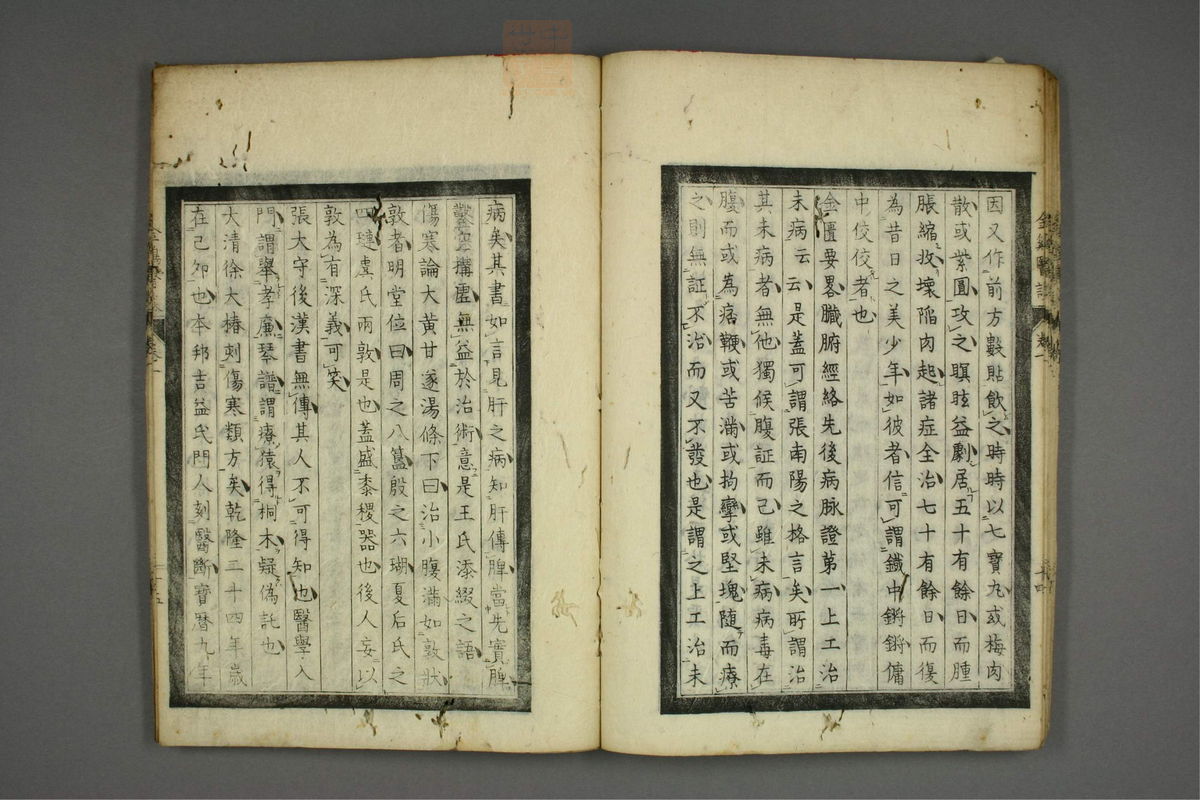 因又作前方數貼飲之時時以七寶丸或梅肉
散或紫圓攻之瞑眩益劇居五十有餘日而腫
脹縮收壞陷肉起諸症全治七十有餘日而復
為昔日之美少年如彼者信可謂鐵中錚錚傭
中佼佼者也
金匱要畧臟腑經絡先後病脉證第一上工治
未病云云是蓋可謂張南陽之格言矣所謂治
其未病者無他獨候腹証而已雖未病病毒在
腹而或為痞鞕或苦滿或拘攣或堅塊隨而療
之則無証不治而又不發也是謂之上工治未
病矣其書如言見肝之病知肝傳脾當先實脾
鑿空搆虛無益於治術意是王氏添綴之語
傷寒論大黄甘遂湯條下曰治小腹滿如敦狀
敦者明堂位曰周之八簋殷之六瑚夏后氏之
四璉虞氏兩敦是也蓋盛黍稷器也後人妄以
敦為有深義可笑
張大守後漢書無傳其人不可得知也醫學入
門謂舉孝廉琴譜謂療猿得桐木疑偽託也
大清徐大椿刻傷寒類方矣乾隆二十四年歲
在己卯也本邦吉益氏門人刻醫斷寶曆九年